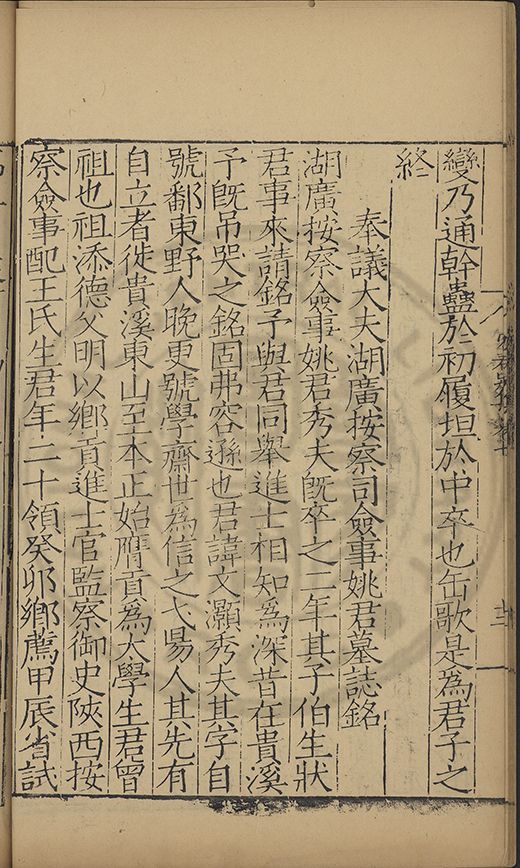 變乃通幹蠱於初履坦於中卒也缶歌是為君子之
終
奉議大夫湖廣按察司僉事姚君墓誌銘
湖廣按察僉事姚君秀夫旣卒之二年其子伯生狀
君事來請銘予與君同舉進士相知為深昔在貴溪
予旣吊哭之銘固弗容遜也君諱文灝秀夫其字自
號鄱東野人晚更號學齋世為信之弋昜人其先有
自立者徙貴溪東山至本正始膺貢為大學生君曾
祖也祖添德父明以鄉貢進士官監察御史陝西按
察僉事配王氏生君年二十領癸卯鄉薦甲辰省試